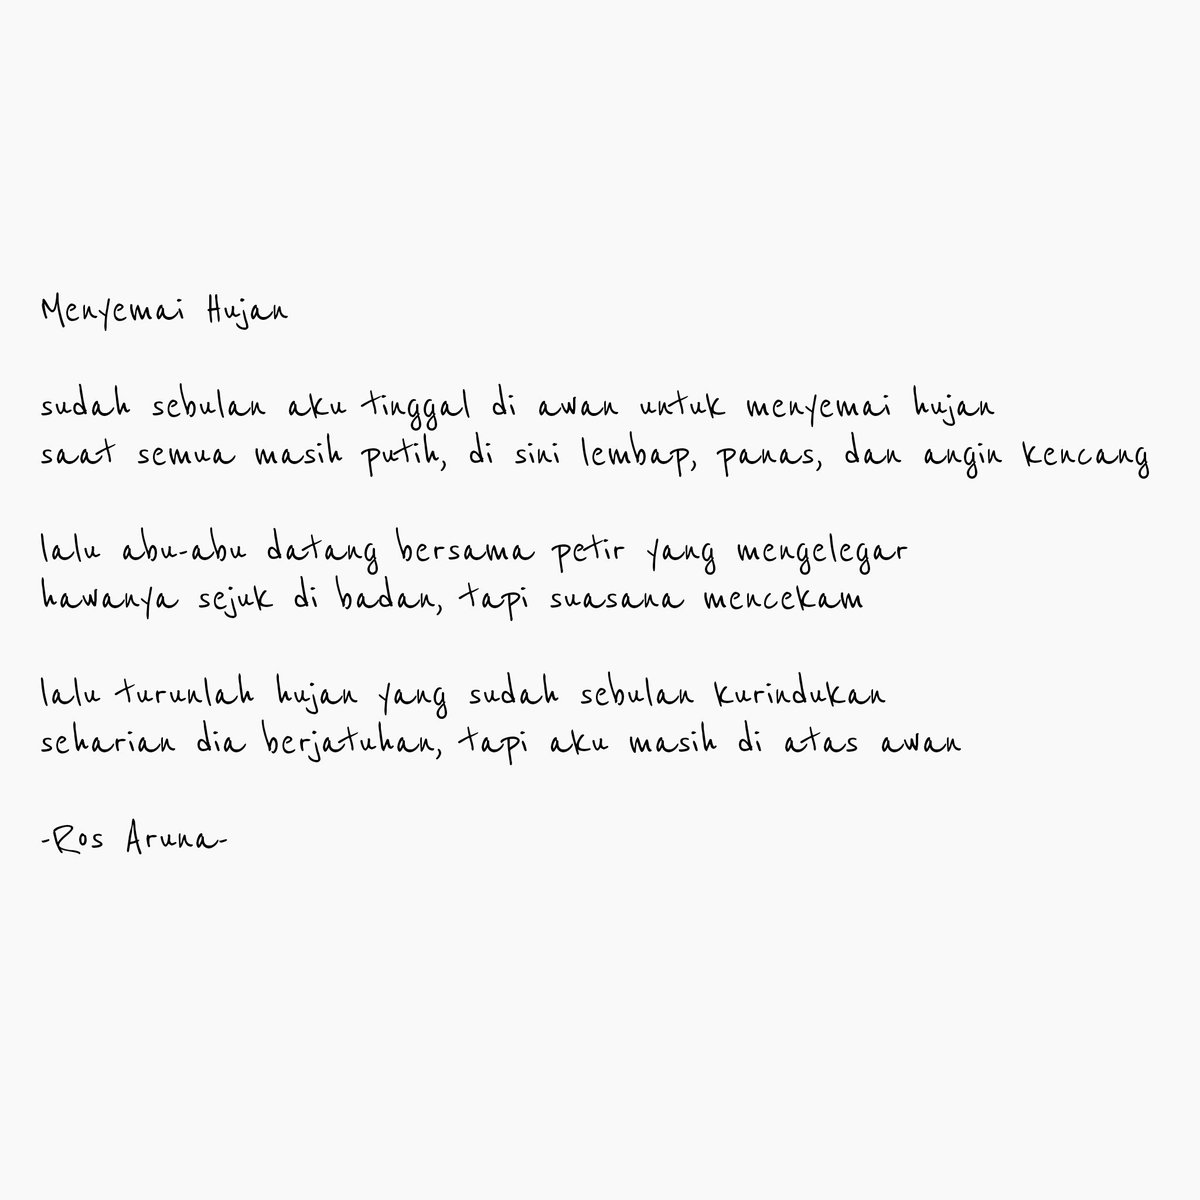 Menyemai Hujan
sudah sebulan aku tinggal di awan untuk menyemai hujan
saat semua masih putih, di sini lembap, panas, dan angin kencang
lalu abu-abu datang bersama petir yang mengelegar
hawanya sejuk di badan, tapi suasana mencekam
lalu turunlah hujan yang sudah sebulan kurindukan
seharian dia berjatuhan, tapi aku masih di atas awan
-Ros Aruna-